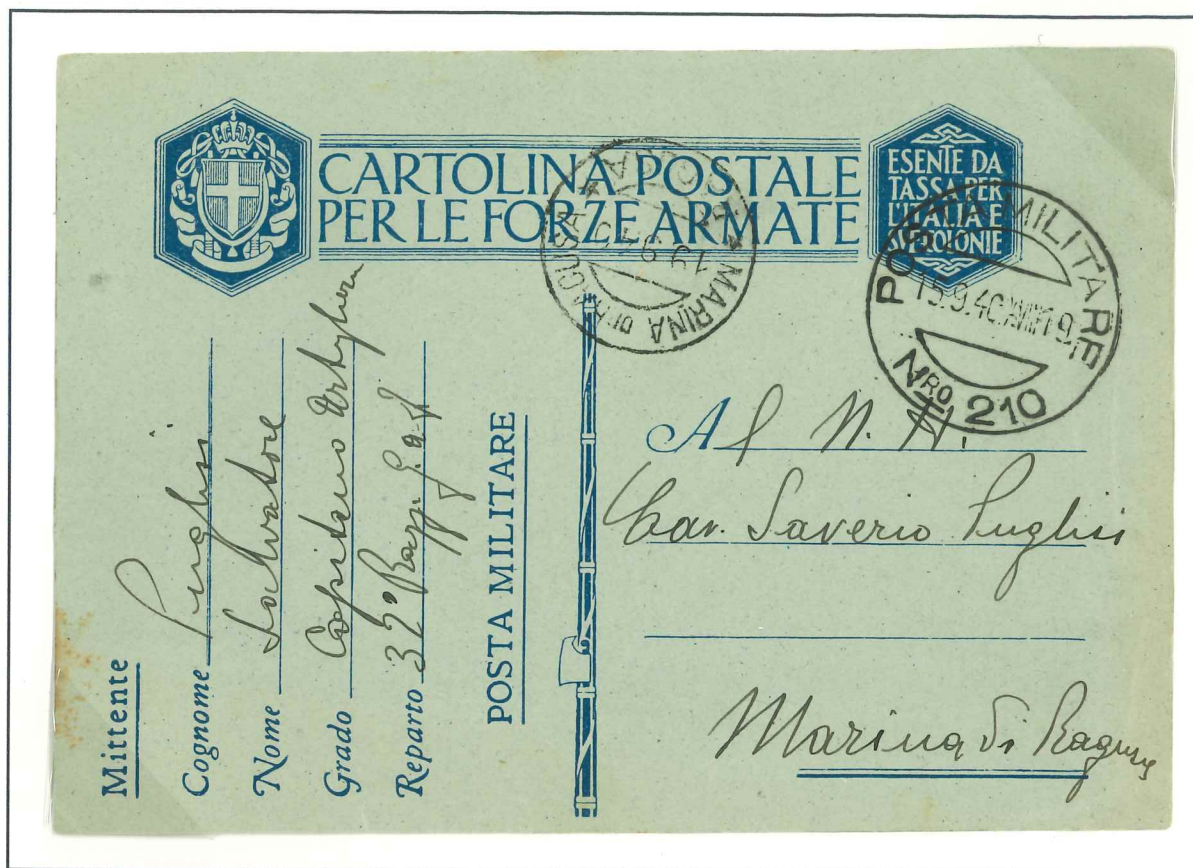 CARTOLINA POSTALE
PER LE FORZE ARMATE
ESENTE DA
TASSA PER
L'ITALIA E
COLONIE
MARINA DI RAGUSA
19.9.40
POSTA MILITARE
15.9.40 XVIII 19
NRO 210
Mittente
Cognome Puglisi
Nome Salvatore
Grado Capitano Artiglieria
Reparto 32° Ragg. G. a. F.
POSTA MILITARE
Al N. H.
Cav. Saverio Puglisi
Marina di Ragusa